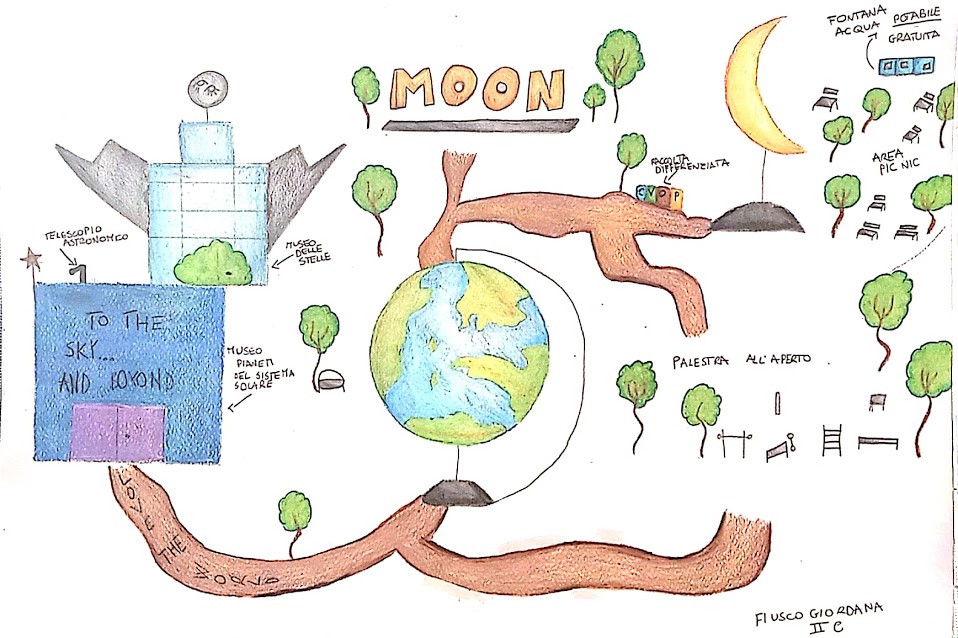 FONTANA
ACQUA POTABILE
GRATUITA
MOON
RACCOLTA
DIFFERENZIATA
C V O P
AREA
PIC NIC
TELESCOPIO
ASTRONOMICO
MUSEO
DELLE
STELLE
TO THE
SKY...
AND
MUSEO
PIANETI
DEL SISTEMA
SOLARE
PALESTRA ALL'APERTO
LOVE THE
FIUSCO GIORDANA
II C